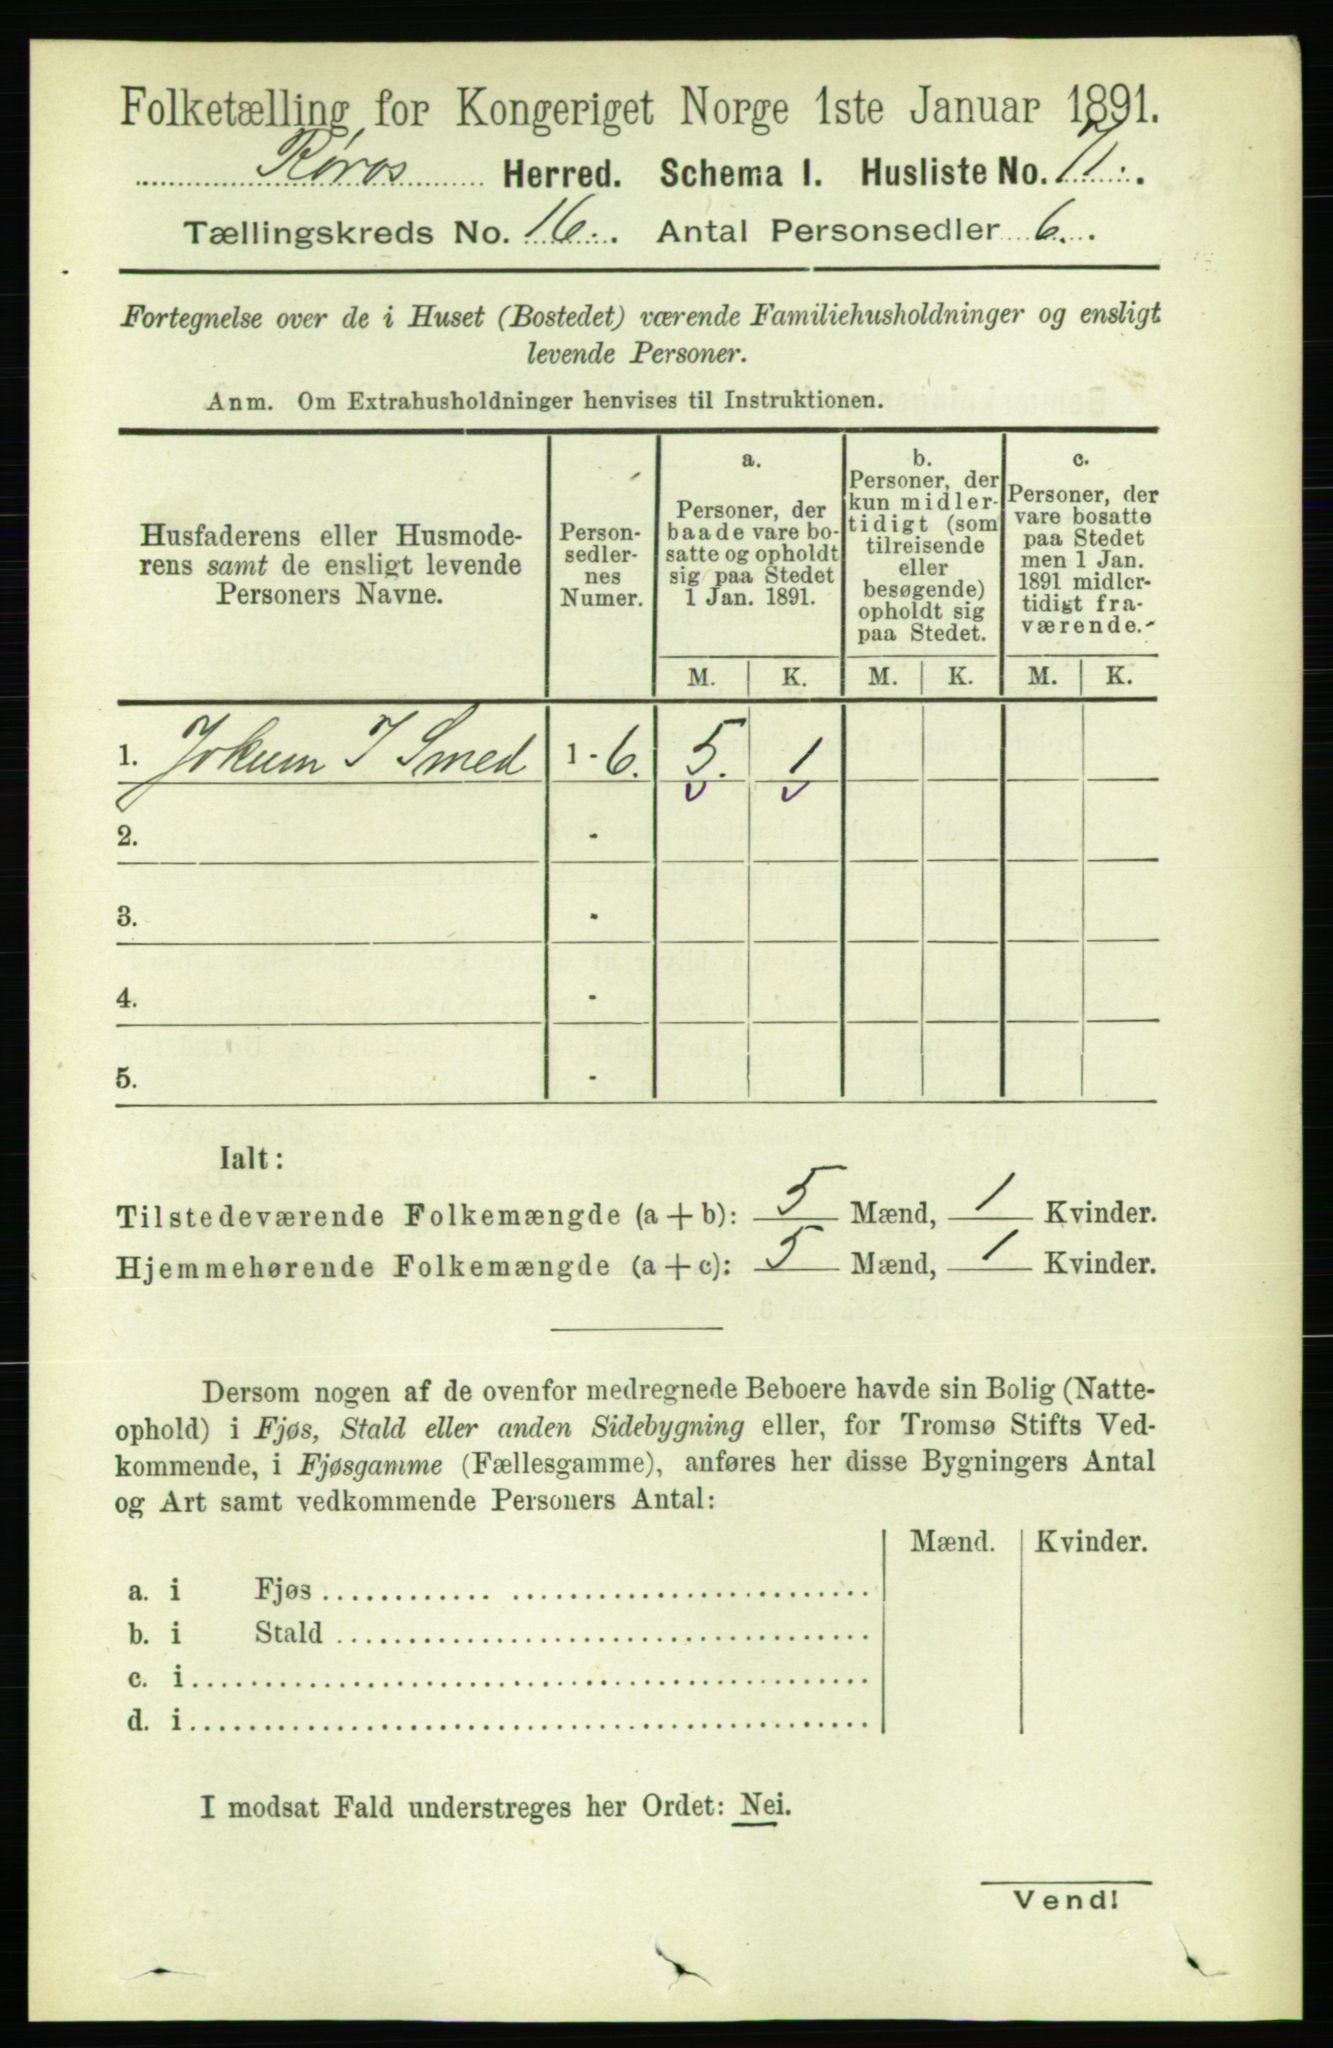 Folketælling for Kongeriget Norge 1ste Januar 1891.
Røros Herred. Schema I. Husliste No. 11.
Tællingskreds No. 16. Antal Personsedler 6.
Fortegnelse over de i Huset (Bostedet) værende Familiehusholdninger og ensligt
levende Personer.
Anm. Om Extrahusholdninger henvises til Instruktionen.
Husfaderens eller Husmode-
rens samt de ensligt levende
Personers Navne.
Person-
sedler-
nes
Numer.
a.
Personer, der
baade vare bo-
satte og opholdt
sig paa Stedet
1 Jan. 1891.
b.
Personer, der
kun midler-
tidigt (som
tilreisende
eller
besøgende)
opholdt sig
paa Stedet.
c.
Personer, der
vare bosatte
paa Stedet
men 1 Jan.
1891 midler-
tidigt fra-
værende.
M. K. M. K. M. K.
1. Jokum J Smed 1 - 6. 5. 1
2. -
3. -
4. -
5. -
Ialt:
Tilstedeværende Folkemængde (a + b): 5 Mænd, 1 Kvinder.
Hjemmehørende Folkemængde (a + c): 5 Mænd, 1 Kvinder.
Dersom nogen af de ovenfor medregnede Beboere havde sin Bolig (Natte-
ophold) i Fjøs, Stald eller anden Sidebygning eller, for Tromsø Stifts Ved-
kommende, i Fjøsgamme (Fællesgamme), anføres her disse Bygningers Antal
og Art samt vedkommende Personers Antal:
Mænd. Kvinder.
a. i Fjøs
b. i Stald
c. i
d. i
I modsat Fald understreges her Ordet: Nei.
Vend!